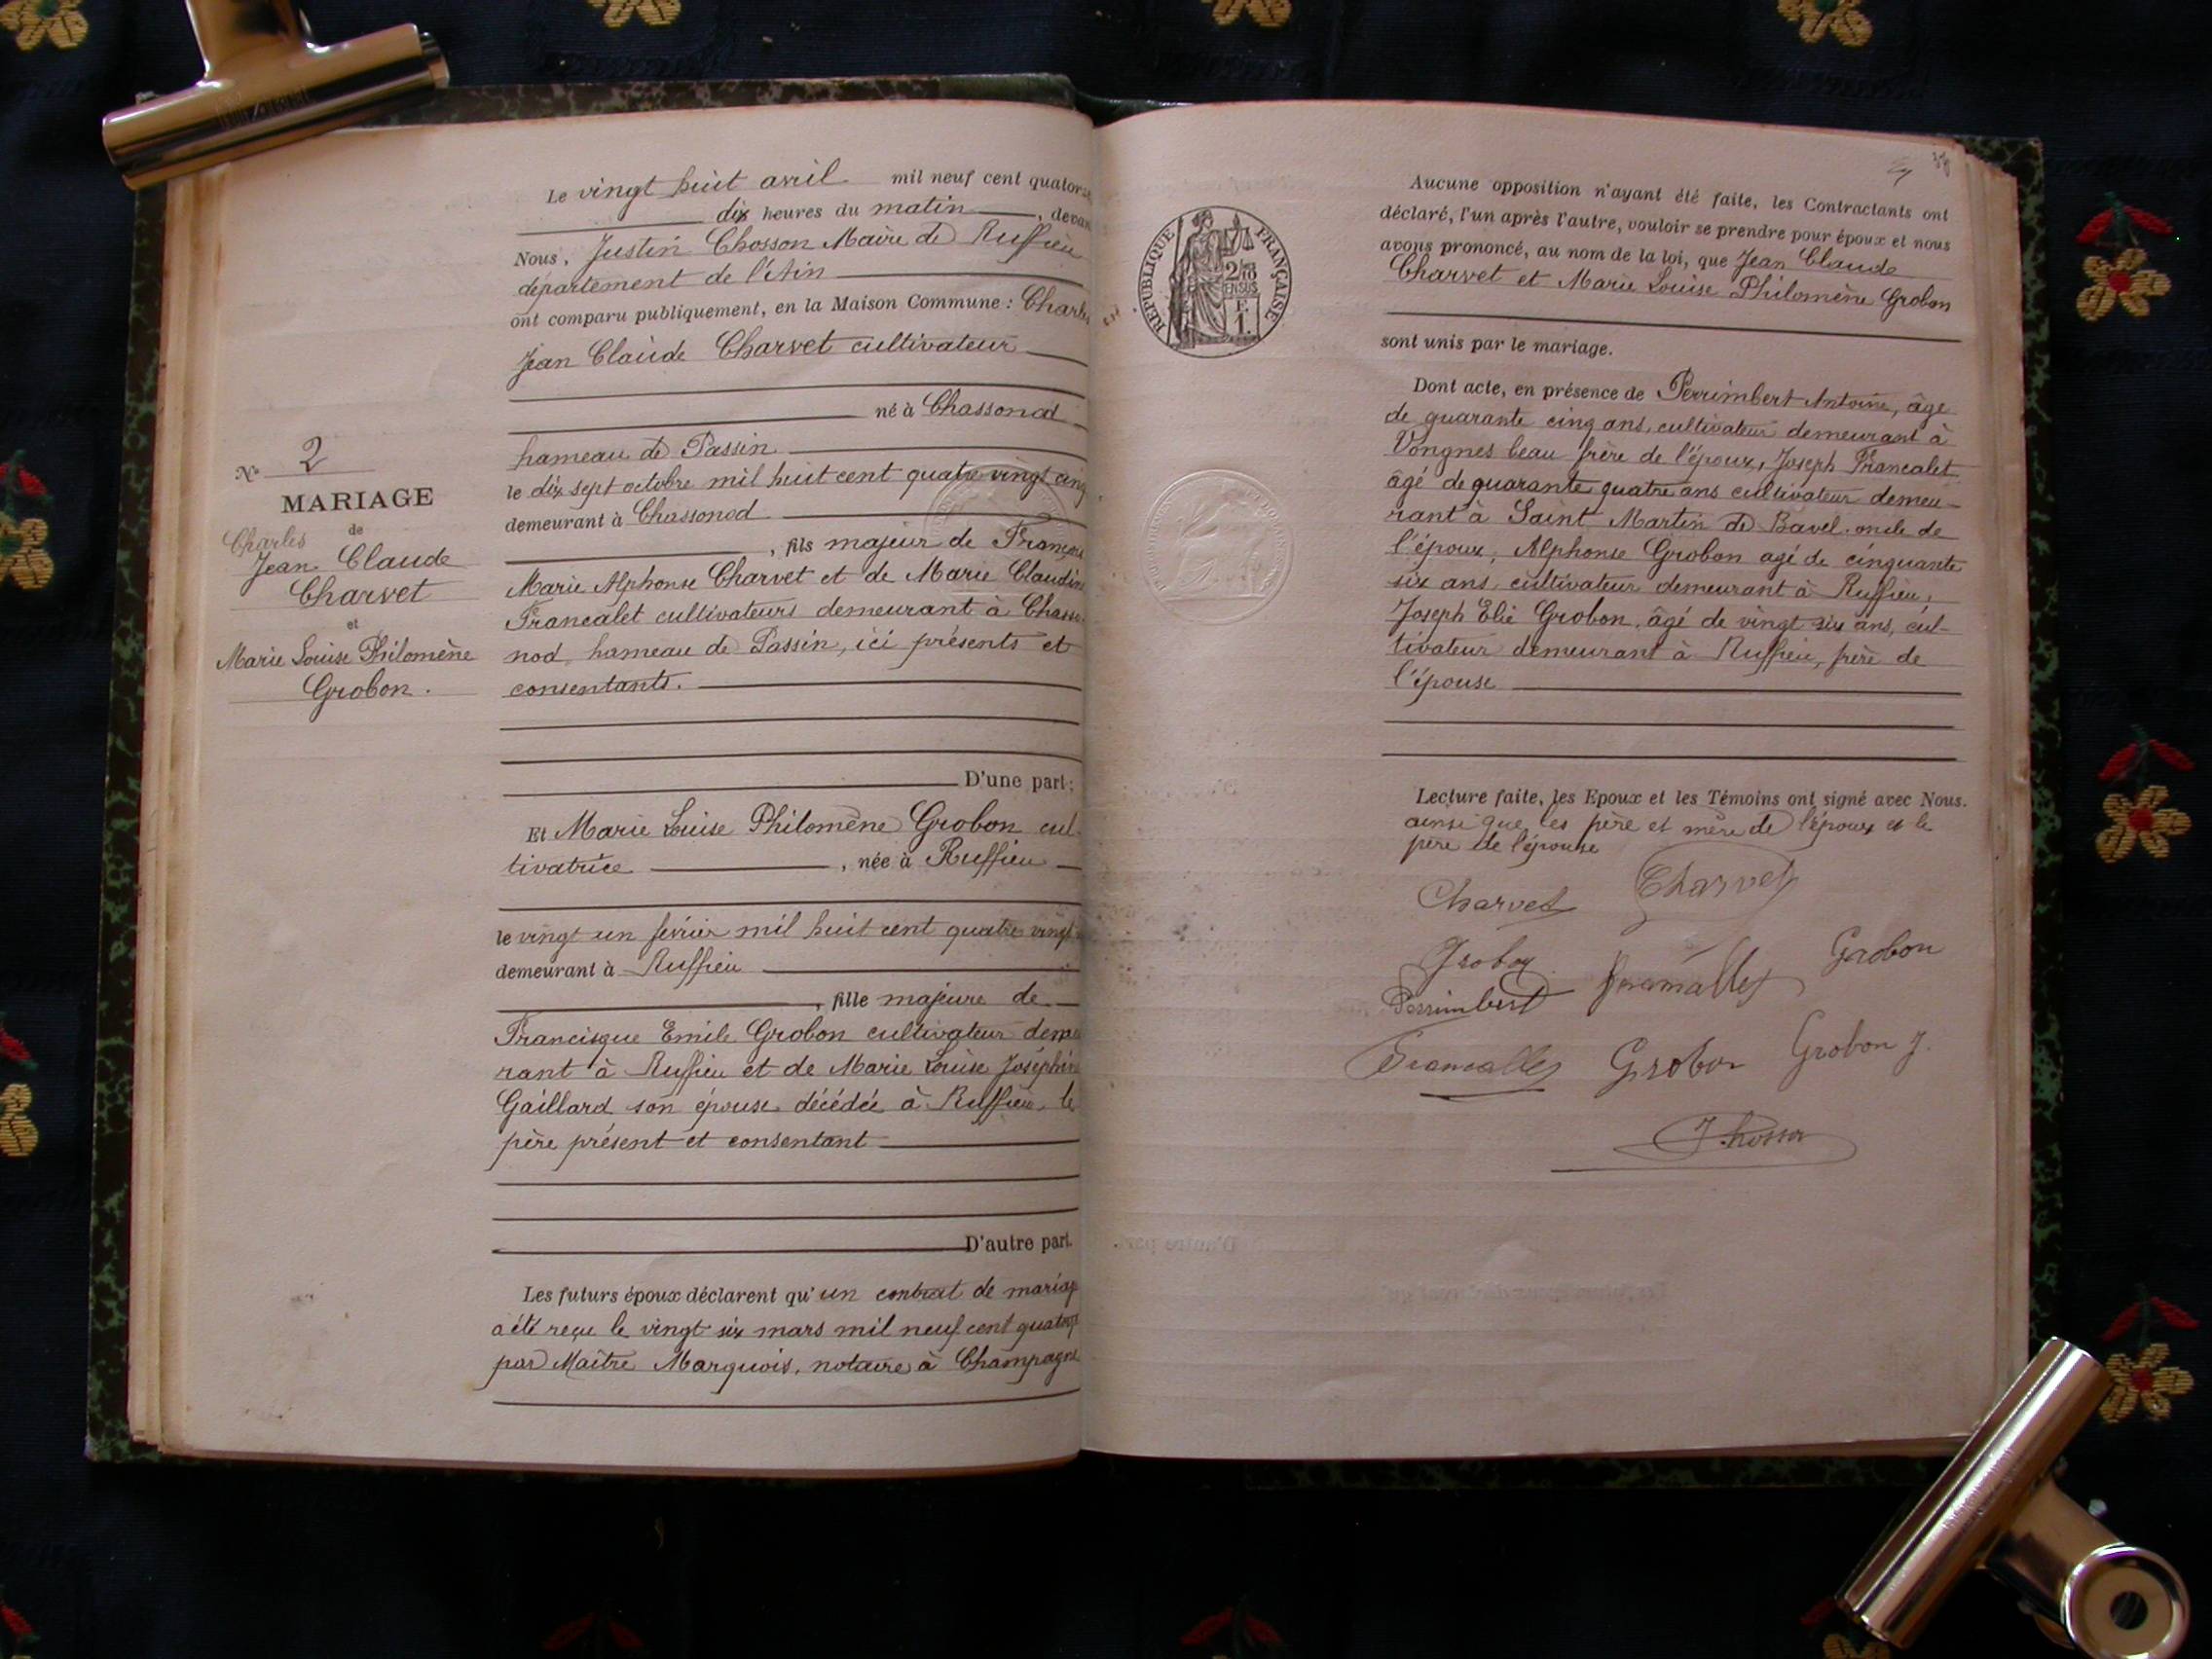 Le vingt huit avril mil neuf cent quatorze
dix heures du matin, devant
Nous, Justin Chosson Maire de Ruffieu
département de l'Ain
ont comparu publiquement, en la Maison Commune : Charles
Jean Claude Charvet cultivateur
né à Chassonod
hameau de Passin
le dix sept octobre mil huit cent quatre vingt cinq
demeurant à Chassonod
, fils majeur de François
Marie Alphonse Charvet et de Marie Claudine
Francalet cultivateurs demeurant à Chasso-
nod, hameau de Passin, ici présents et
consentants.
D'une part ;
N° 2
MARIAGE
de
Charles
Jean Claude
Charvet
et
Marie Louise Philomène
Grobon.
Et Marie Louise Philomène Grobon cul-
tivatrice , née à Ruffieu
le vingt un février mil huit cent quatre vingt
demeurant à Ruffieu
, fille majeure de
Francisque Emile Grobon cultivateur demeu
rant à Ruffieu et de Marie Louise Joséphine
Gaillard son épouse décédée à Ruffieu, le
père présent et consentant
D'autre part.
Les futurs époux déclarent qu'un contrat de mariage
a été reçu le vingt six mars mil neuf cent quatorze
par Maître Marquois, notaire à Champagne
REPUBLIQUE FRANÇAISE
2/10
EN SUS
F.
1.
Aucune opposition n'ayant été faite, les Contractants ont
déclaré, l'un après l'autre, vouloir se prendre pour époux et nous
avons prononcé, au nom de la loi, que Jean Claude
Charvet et Marie Louise Philomène Grobon
sont unis par le mariage.
Dont acte, en présence de Perrimbert Antoine, âge
de quarante cinq ans, cultivateur demeurant à
Vongnes beau frère de l'époux, Joseph Francalet
âgé de quarante quatre ans cultivateur demeu-
rant à Saint Martin de Bavel oncle de
l'époux, Alphonse Grobon agé de cinquante
six ans, cultivateur demeurant à Ruffieu,
Joseph Elie Grobon, âgé de vingt six ans, cul-
tivateur demeurant à Ruffieu, frère de
l'épouse
Lecture faite, les Epoux et les Témoins ont signé avec Nous.
ainsi que les père et mère de l'époux et le
père de l'épouse
Charvet Charvet
Grobon Grobon
Perrimbert
Grobon Grobon J.